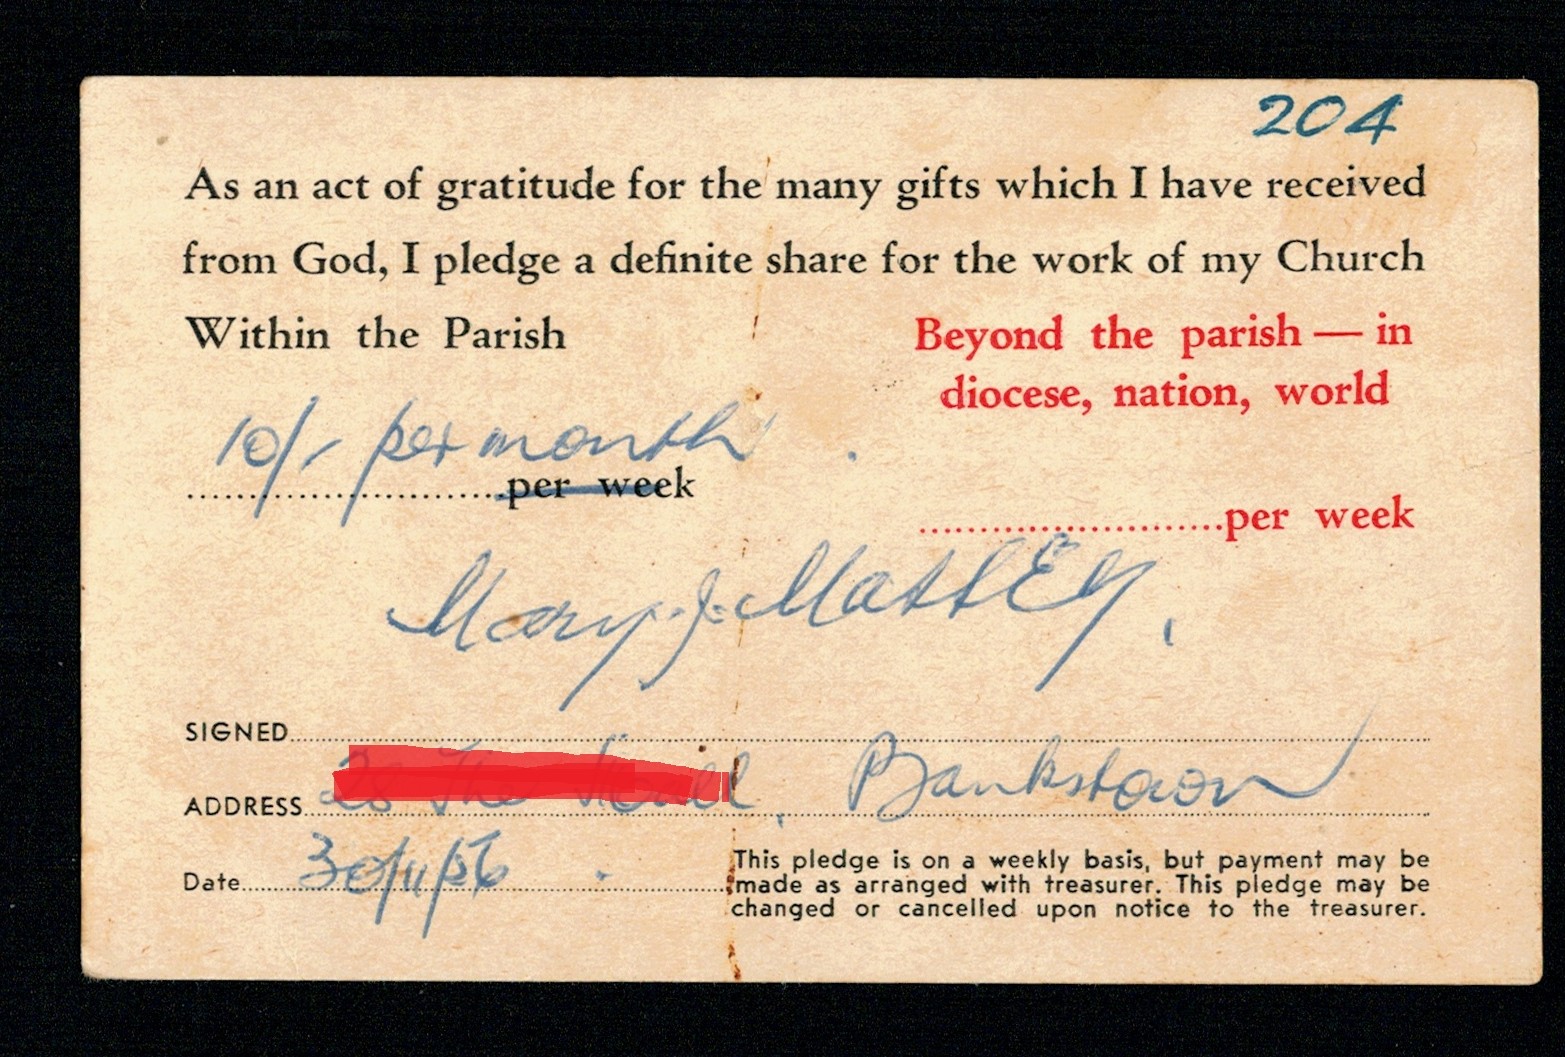 204
As an act of gratitude for the many gifts which I have received
from God, I pledge a definite share for the work of my Church
Within the Parish
Beyond the parish — in
diocese, nation, world
10/- per month
per week
per week
Mary J. Massey.
SIGNED
ADDRESS Bankstown
Date 30/11/56
This pledge is on a weekly basis, but payment may be
made as arranged with treasurer. This pledge may be
changed or cancelled upon notice to the treasurer.